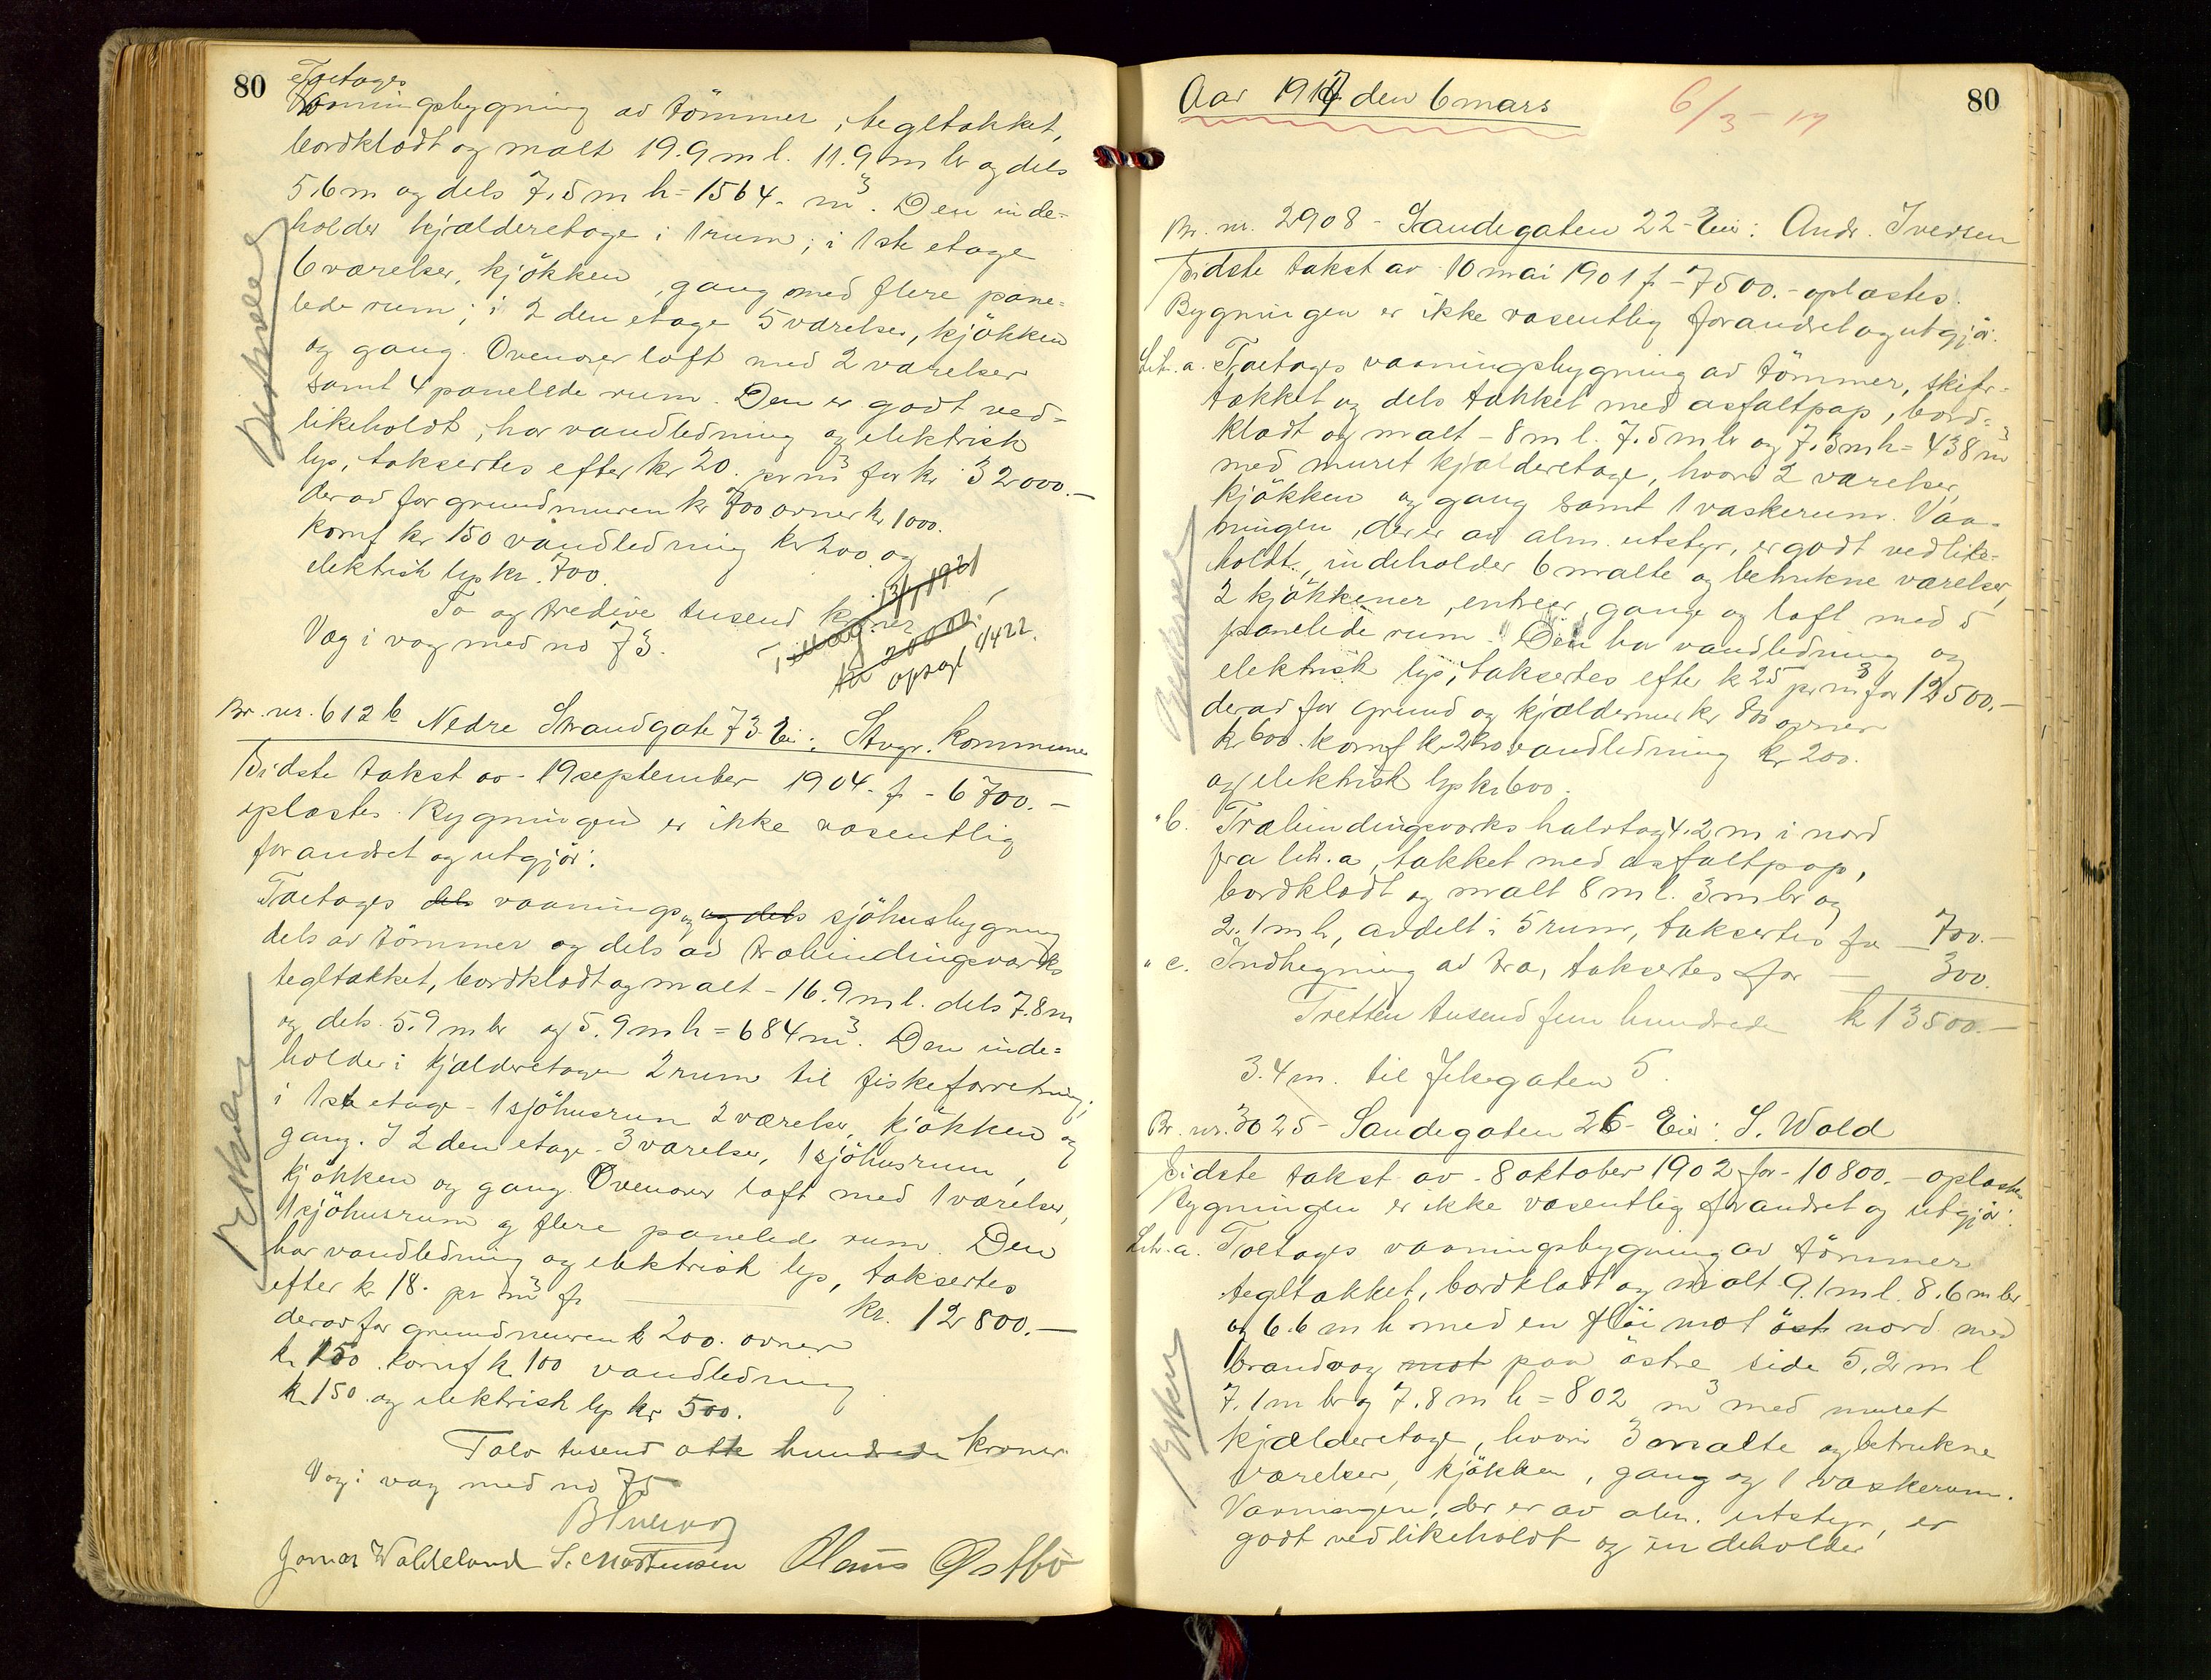 80
Toetages
Vaaningsbygning av tömmer, tegltækket,
bordklædt og malt 19.9 m l. 11.9 m br og dels
5.6 m og dels 7.5 m h = 1564 - m³. Den inde-
holder kjælderetage i 1 rum; i 1ste etage
6 værelser, kjökken, gang med flere pane-
lede rum; i 2den etage 5 værelser, kjökken
og gang. Ovenover loft med 2 værelser
samt 4 panelede rum. Den er godt ved-
likeholdt, har vandledning og elektrisk
lys, taksertes efter kr 20. pr m³ for kr 32000.-
derav for grundmuren kr 700 ovner kr 1000.
komf kr 150 vandledning kr 200 og
elektrisk lys kr. 700.
To og tredive tusend kroner
Væg i væg med no 73.
Tillæg 13/1 1921
kr 20000.
opsagt 1/4 22.
Br. nr. 612b Nedre Strandgate 73 Eier: Stvgr. Kommune
Sidste takst av - 19 september 1904 - f - 6700.-
oplæstes. Bygningen er ikke væsentlig
forandret og utgjör:
Toetages dels vaanings og og dels sjöhusbygning
dels av tömmer og dels av træbindingsværks
tegltækket, bordklædt og malt - 16.9 m l. dels 7.8 m
og dels 5.9 m br og 5.9 m h = 684 m³. Den inde-
holder i kjælderetagen 2 rum til fiskeforretning;
i 1ste etage - 1 sjöhusrum 2 værelser, kjökken og
gang. I 2den etage - 3 værelser, 1 sjöhusrum,
kjökken og gang. Ovenover loft med 1 værelse,
1 sjöhusrum og flere panelede rum. Den
har vandledning og elektrisk lys, taksertes
efter kr 18. pr m³ f. kr. 12800.-
derav for grundmuren kr 200. ovner
kr 150. komf kr 100 vandledning
kr 150. og elektrisk lys kr 500.
Tolv tusend otte hundrede kroner
Væg i væg med no 75
Jonas Waldeland S. Mortensen Olaus Østbö
80
Aar 1917 den 6 mars
6/3-17
Br. nr. 2908 - Sandegaten 22 - Eier: Andr. Iversen
Sidste takst av 10 mai 1901 f - 7500.- oplæstes.
Bygningen er ikke væsentlig forandret og utgjör:
Litr. a. Toetages vaaningsbygning av tömmer, skifer-
tækket og dels tækket med asfaltpap, bord-
klædt og malt - 8 m l. 7.5 m br og 7.3 m h = 438 m³
med muret kjælderetage, hvori 2 værelser,
kjökken og gang samt 1 vaskerum. Vaa-
ningen, der er av alm. utstyr, er godt vedlike-
holdt, indeholder 6 malte og betrukne værelser,
2 kjökkener, entreer, gange og loft med 5
panelede rum. Den har vandledning og
elektrisk lys, taksertes efter kr 25 pr m³ for 12500.-
derav for grund og kjældermur kr ovner
kr 600. komf kr 200 vandledning kr 200.
og elektrisk lys kr 600.
" b. Træbindingsverks halvtag 4.2 m i nord
fra litr. a, tækket med asfaltpap,
bordklædt og malt 8 m l. 3 m br og
2.1 m h, avdelt i 5 rum, taksertes for - 700.-
" c. Indhegning av træ, taksertes for - 300.
Tretten tusend fem hundrede kr 13500.-
3.4 m. til Jelsegaten 5.
Br. nr. 3025 - Sandegaten 26 - Eier: S. Wold
Sidste takst av - 8 oktober 1902 for - 10800.- oplæstes
Bygningen er ikke væsentlig forandret og utgjör:
Litr. a. Toetages vaaningsbygning av tömmer
tegltækket, bordklædt og malt 9.1 m l. 8.6 m br.
og 6.6 m h med en flöi mot öst nord med
brandvæg mot paa östre side 5.2 m l
7.1 m br og 7.8 m h = 802 m³ med muret
kjælderetage, hvori 3 malte og betrukne
værelser, kjökken, gang og 1 vaskerum.
Vaaningen, der er av alm. utstyr, er
godt vedlikeholdt og indeholder